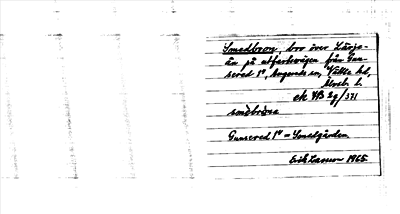 Smedbron, bro över Lärje-
ån på utfartsvägen från Gun-
nered 1º, Angereds sn, Vättle hd,
Älvsb. l.
ek 7B 2g/371
smèbròna
Gunnered 1º = Smedgården
Erik Larsson 1965